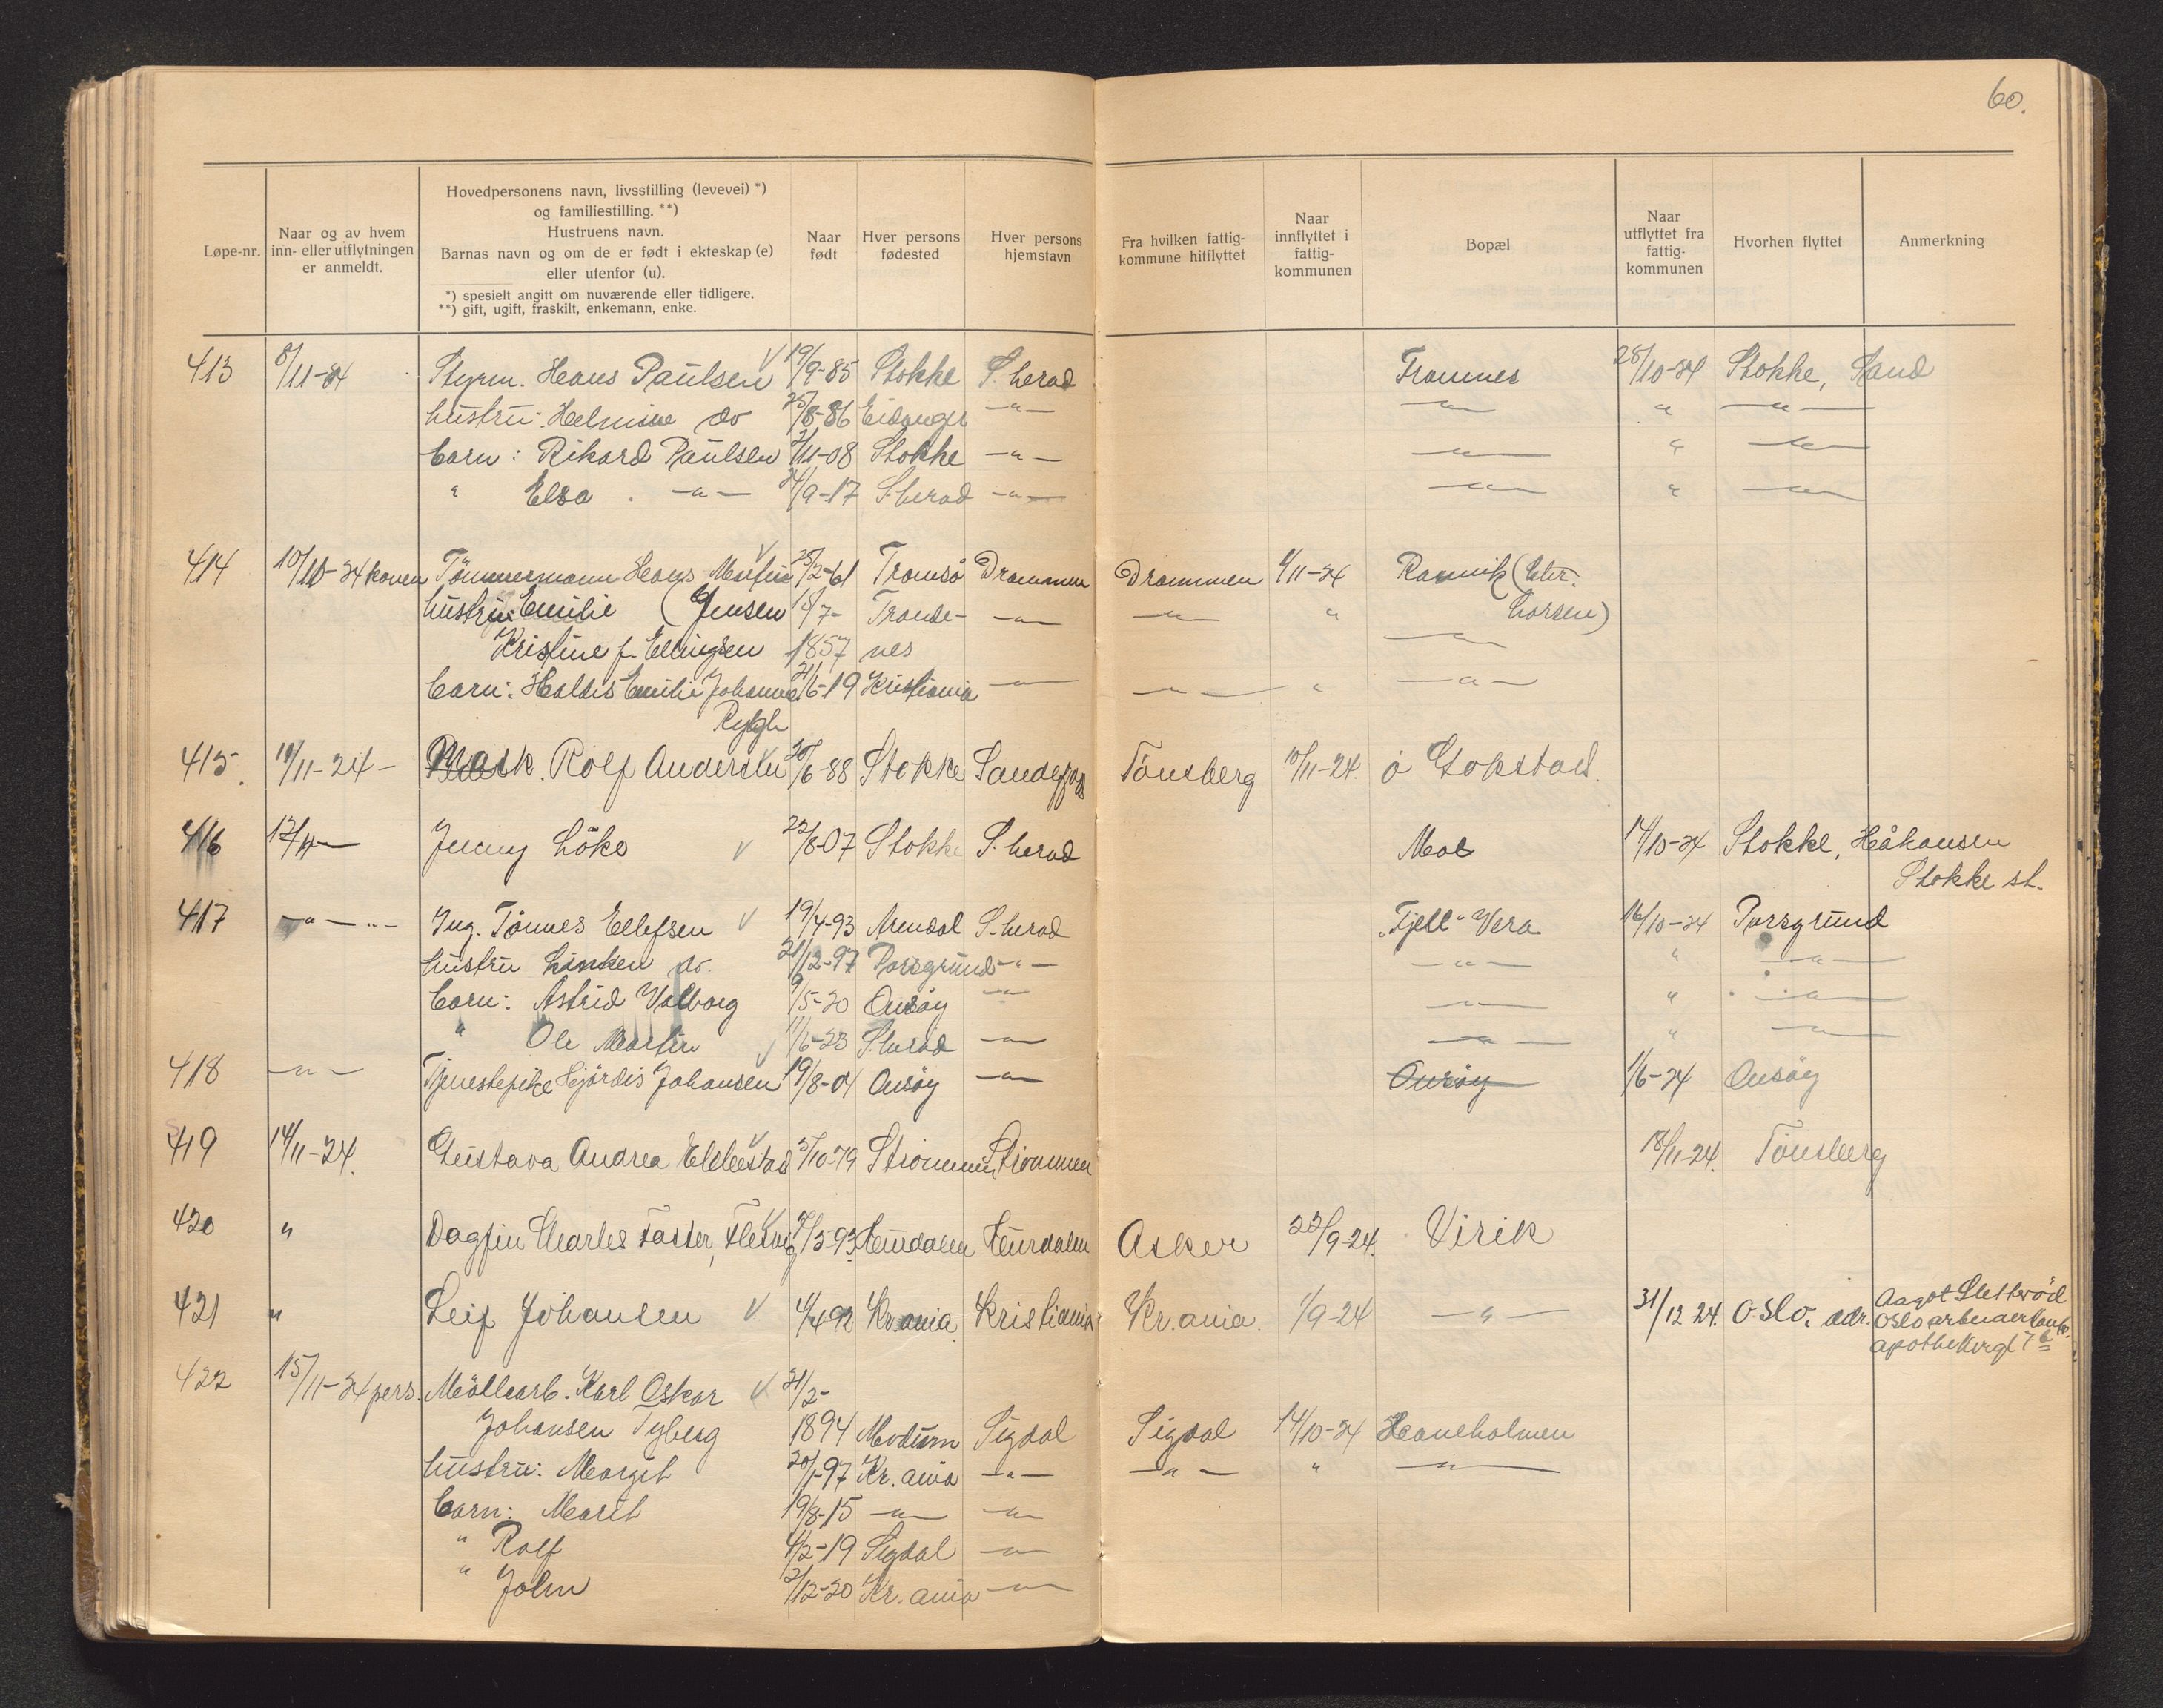 60.
Løpe-nr. | Naar og av hvem inn- eller utflytningen er anmeldt. | Hovedpersonens navn, livsstilling (levevei) *) og familiestilling. **) Hustruens navn. Barnas navn og om de er født i ekteskap (e) eller utenfor (u). *) spesielt angitt om nuværende eller tidligere. **) gift, ugift, fraskilt, enkemann, enke. | Naar født | Hver persons fødested | Hver persons hjemstavn | Fra hvilken fattig-kommune hitflyttet | Naar innflyttet i fattig-kommunen | Bopæl | Naar utflyttet fra fattig-kommunen | Hvorhen flyttet | Anmerkning
413 8/11-24 Styrm. Hans Paulsen 19/9-85 Stokke S. herad Framnes 28/10-24 Stokke, Sand
hustru: Helmine do 25/8-86 Eidanger -"- -"- " -"-
barn: Rikard Paulsen 2/11-08 Stokke -"- -"- " -"-
" Elsa -"- 24/9-17 S. herad -"- -"- " -"-
414 10/11-24 konen Tömmermann Hans Martin 25/2-61 Tromsö Drammen Drammen 1/11-24 Ranvik (Chr.
hustru: Emilie (Jensen 18/7- Tronde- -"- -"- " Larsen)
Kristine f. Ellingsen 1857 nes -"-
barn: Haldis Emilie Johanne 21/6-19 Kristiania -"- -"- " -"-
Rygh
415. 10/11-24 - Mask. Rolf Andersen 20/6-88 Stokke Sandefjord Tönsberg 10/11-24. ö Gokstad.
416 12/11 - Jenny Löke 22/8-07 Stokke S. herad Moe 14/10-24 Stokke, Håkansen
Stokke st.
417 -"- Ing. Tönnes Ellefsen 19/4-93 Arendal S. herad "Fjell" Vera 16/10-24 Porsgrund
hustru Linken do. 21/12-97 Porsgrund -"- -"- " -"-
barn: Astrid Valborg 9/5-20 Onsöy -"- -"- " -"-
" Ole Martin 11/6-23 S. herad -"- -"- " -"-
418 -"- Tjenestepike Hjördis Johansen 19/8-04 Onsöy -"- Onsöy 1/6-24 Onsöy
419 14/11-24. Gustava Andrea Ellefstad 3/10-79 Strömmen Strömmen 18/11-24. Tönsberg
420 " Dagfin Charles Faster, 5/5-93 Asker 22/9-24. Virik
421 " Leif Johansen 4/4 92 Kr.ania Kristiania Kr.ania. 1/9-24 -"- 31/12 24. Oslo, adr. Aagot
Oslo
apothekergt 7 b
422 15/11-24 pers. Möllearb. Karl Oskar 21/2-
Johansen Tyberg 1894 Modum Sigdal Sigdal 14/10-24 Haneholmen
hustru: Margit 20/1-97 Kr. ania -"- -"- " -"-
barn: Marit 19/8-15 -"- -"-
" Rolf 4/2-19 Sigdal -"-
" John 2/12-20 Kr. ania -"-